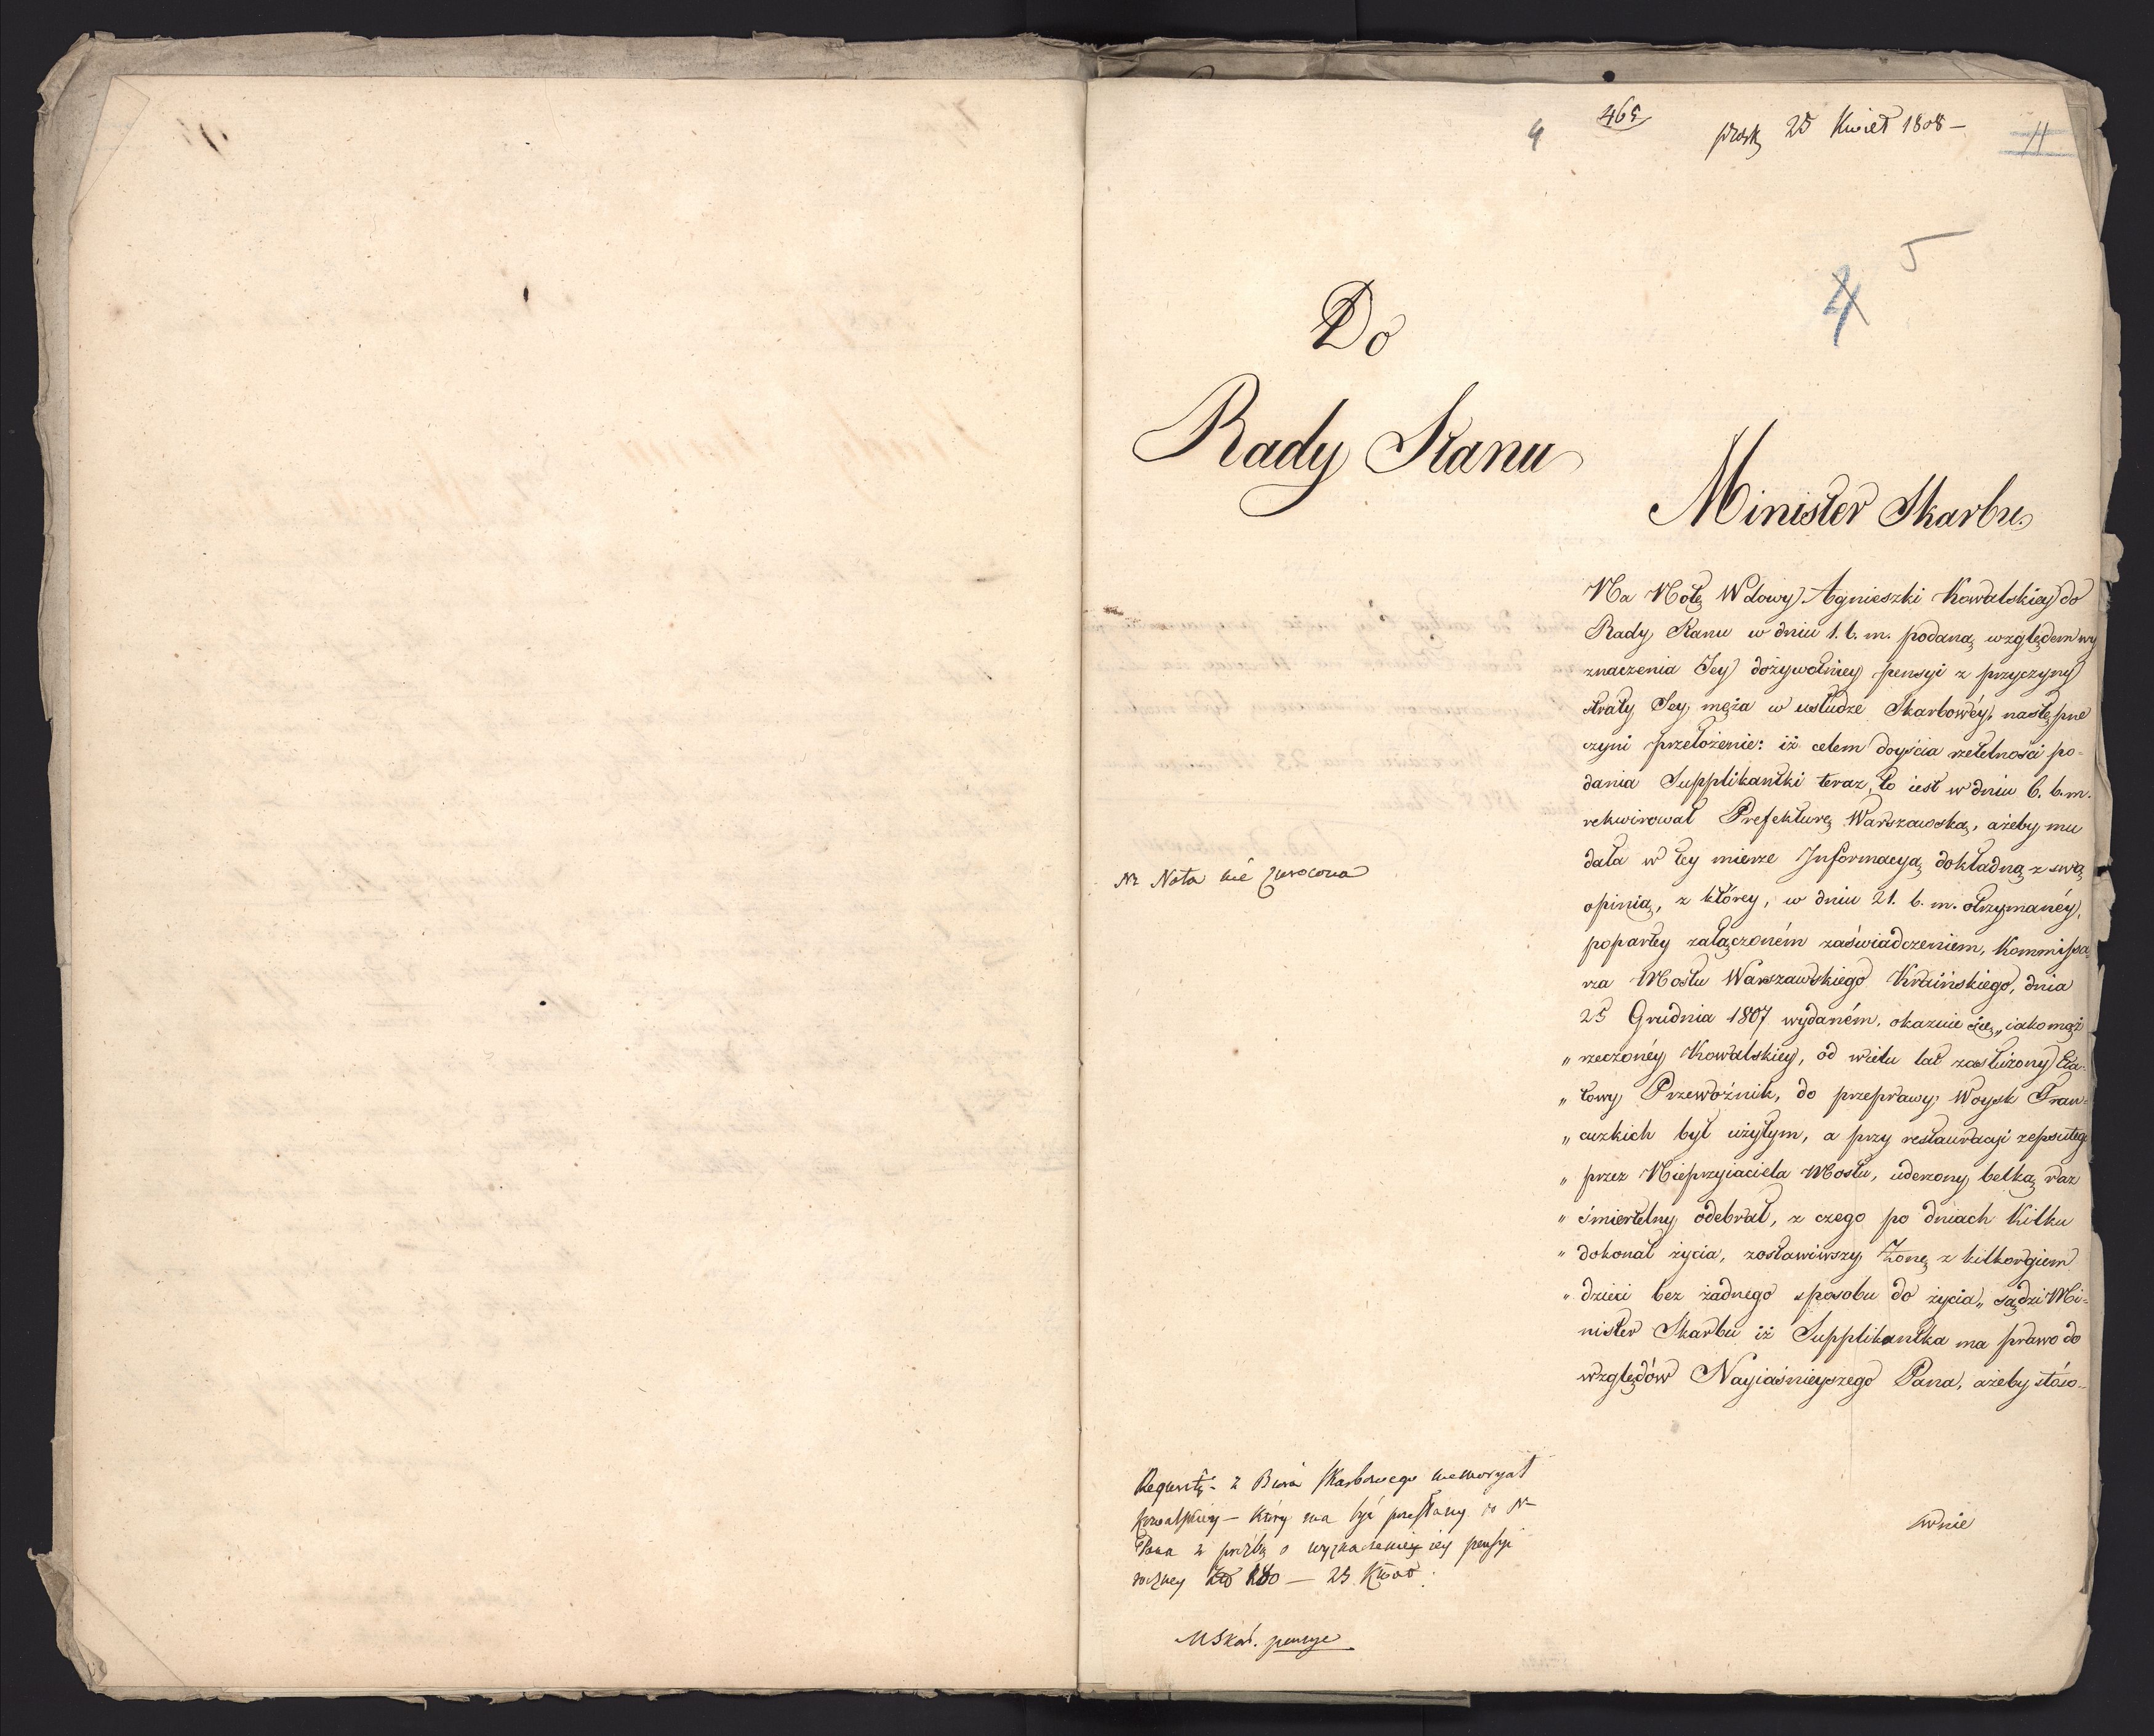 4
465
25 Kwiet 1808 —
11
5
4
Do
Rady Stanu
Minister Skarbu
Na Notę Wdowy Agnieszki Kowalskiey do
Rady Stanu w dniu 1. b. m. podaną względem wy
znaczenia Jey dożywotniey pensyi z przyczyny
straty Jey męża w usłudze Skarbowéy, następne
czyni przełożenie: iż celem doyścia rzetelności po-
dania Supplikantki teraz, to iest w dniu 6. b. m.
rekwirował Prefekturę Warszawską, ażeby mu
dała w tey mierze Informacyą dokładną z swą
opinią, z którey, w dniu 21. b. m. otrzymanéy,
popartey załączoném zaświadczeniem, Kommissa
rza Mostu Warszawskiego Kraińskiego, dnia
25 Grudnia 1807 wydaném, okazuie się, „iako mąż
„ rzeczonéy Kowalskiey, od wielu lat zasłużony Eta-
„ towy Przewoźnik, do przeprawy Woysk Fran-
„ cuzkich był użytym, a przy restauracyi zepsutego
„ przez Nieprzyiaciela Mostu, uderzony belką raz
„ śmiertelny odebrał, z czego po dniach kilku
„ dokonał życia, zostawiwszy Żonę z kilkorgiem
„ dzieci bez żadnego sposobu do życia„ sądzi Mi-
nister Skarbu iż Supplikantka ma prawo do
względów Nayiaśnieyszego Pana, ażeby stóso-
wnie
Nota nie zwrocona
z Biura Skarbowego memoryał
Kowalskiey — który ma być przesłany do N
Pana z prożbą o wyznaczenie iey pensyi
roczney 180 — 25 Kwiet.
MSkar. pensye